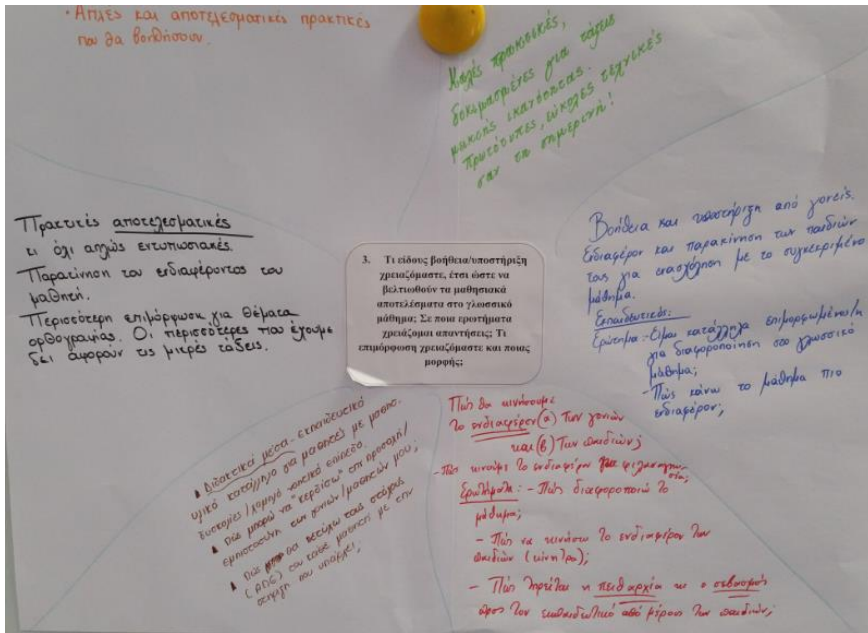 • Απλές και αποτελεσματικές πρακτικές
που θα βοηθήσουν.
Καλές πρακτικές,
δοκιμασμένες για τάξεις
μικτής ικανότητας.
Πρωτότυπες, εύκολες τεχνικές
σαν τη σημερινή!
Πρακτικές αποτελεσματικές
κι όχι απλώς εντυπωσιακές.
Παρακίνηση του ενδιαφέροντος του
μαθητή.
Περισσότερη επιμόρφωση για θέματα
ορθογραφίας. Οι περισσότερες που έχουμε
δει αφορούν τις μικρές τάξεις.
3. Τι είδους βοήθεια/υποστήριξη
χρειαζόμαστε, έτσι ώστε να
βελτιωθούν τα μαθησιακά
αποτελέσματα στο γλωσσικό
μάθημα; Σε ποια ερωτήματα
χρειάζομαι απαντήσεις; Τι
επιμόρφωση χρειαζόμαστε και ποιας
μορφής;
Βοήθεια και υποστήριξη από γονείς.
Ενδιαφέρον και παρακίνηση των παιδιών
τους για ενασχόληση με το συγκεκριμένο
μάθημα.
Εκπαιδευτικοί:
Ερώτημα: - Είμαι κατάλληλα επιμορφωμένος/η
για διαφοροποίηση στο γλωσσικό
μάθημα;
- Πώς κάνω το μάθημα πιο
ενδιαφέρον;
▲ Διδακτικά μέσα - εκπαιδευτικό
υλικό κατάλληλο για μαθητές με μαθησ.
δυσκολίες / χαμηλό νοητικό επίπεδο.
▲ Πώς μπορώ να "κερδίσω" την προσοχή /
εμπιστοσύνη των γονιών / μαθητών μου;
▲ Πώς θα πετύχω τους στόχους
(ΑΠΣ) του κάθε μαθητή με την
στήριξη που υπάρχει;
Πώς θα κινήσουμε
το ενδιαφέρον (α) των γονιών
και (β) των παιδιών;
- Πώς κινούμε το ενδιαφέρον για φιλαναγνωσία;
Ερωτήματα: - Πώς διαφοροποιώ το
μάθημα;
- Πώς να κινήσω το ενδιαφέρον των
παιδιών (κίνητρο);
- Πώς τηρείται η πειθαρχία κι ο σεβασμός
προς τον εκπαιδευτικό από μέρους των παιδιών;